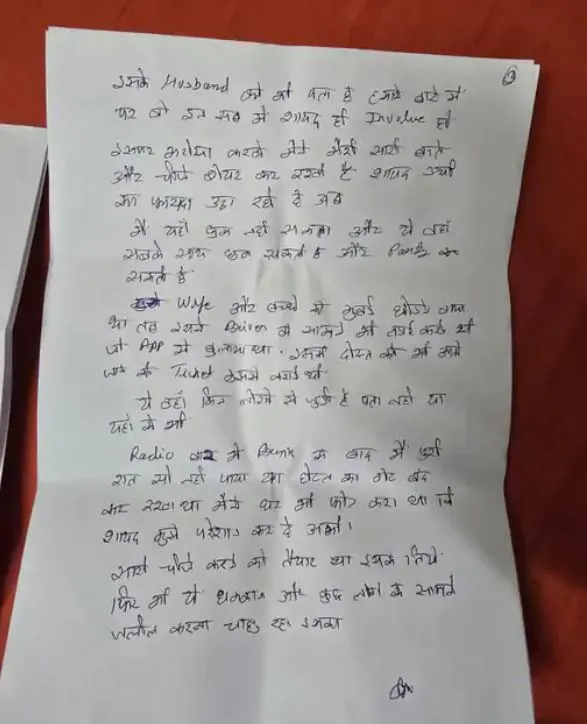 ③
इसके Husband को भी पता है हमारे बारे में
पर वो इन सब में शायद ही Involve हो
इसपर भरोसा करके मैंने मेरी सारी बातें
और चीजें शेयर कर रखी है शायद उसी
का फायदा उठा रही है अब
मैं यहाँ रुक नहीं सकता और ये वहाँ
सबके साथ रुक सकती है और Party कर
सकती है
Wife और बच्चे को मुंबई छोड़ने गया
था तब इसने Driver के सामने भी
जो App से बुलाया था। इसने दोस्त को भी
की Ticket इसने कराई थी
ये वहाँ किन लोगों से जुड़ी है पता नहीं या
यहाँ से भी
Radio बार में Drink के बाद मैं पूरी
रात सो नहीं पाया था होटल का गेट बंद
कर रखा था मैंने घर भी फोन करा था कि
शायद मुझे परेशान कर दे अभी।
सारी चीजें करने को तैयार था इसके लिये
फिर भी ये धमकाना और कुछ लोगों के सामने
जलील करना चाह रहा इसका